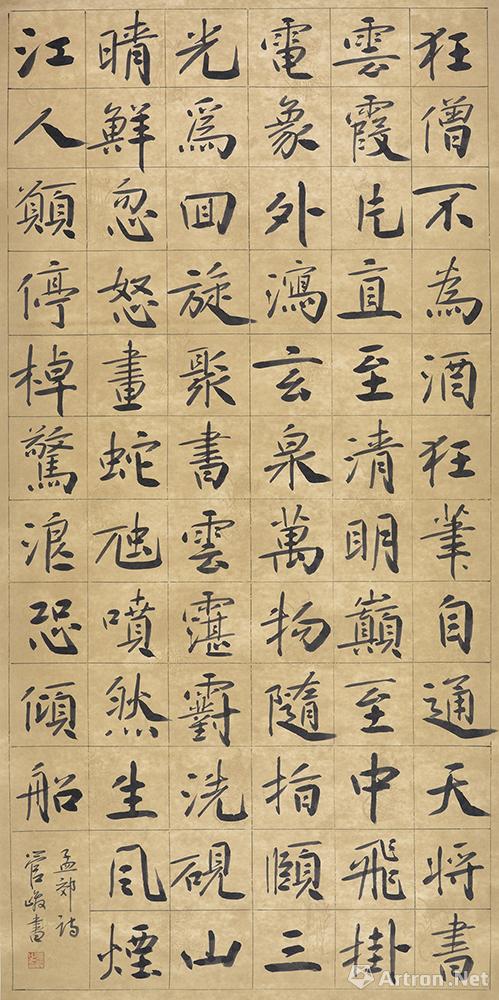 狂僧不為酒狂筆自通天將書
雲霞片直至清明巔至中飛掛
電象外瀉玄泉萬物隨指顧三
光爲回旋聚書雲霮䨴洗硯山
晴鮮忽怒畫蛇虺噴然生風煙
江人願停棹驚浪恐傾船
孟郊詩
管峻書
Artron.Net